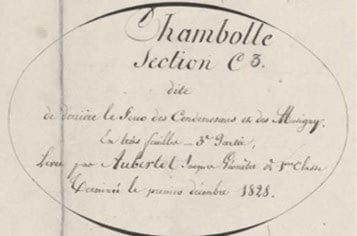 Chambolle
Section C 3.
dite
de derrière le Four des Condemennes et des Musigny.
En trois feuilles — 3e Partie,
Levée par Aubertot Jacques Géomètre de 1ere Classe
Terminée le premier décembre 1828.